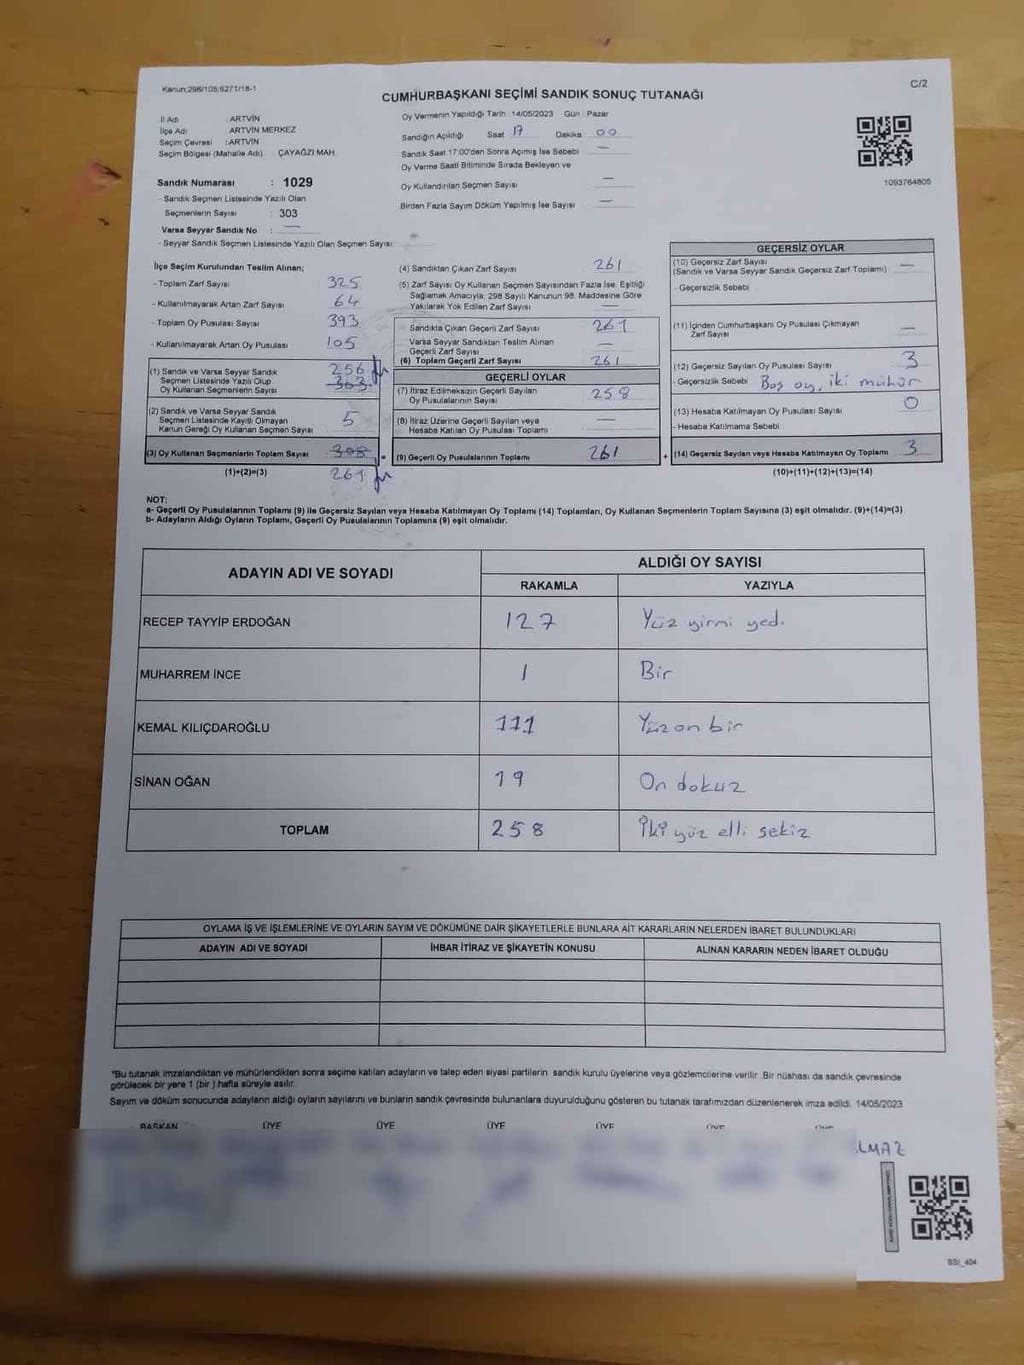 Kanun:298/105;6271/18-1
C/2
CUMHURBAŞKANI SEÇİMİ SANDIK SONUÇ TUTANAĞI
İl Adı : ARTVİN
İlçe Adı : ARTVİN MERKEZ
Seçim Çevresi : ARTVİN
Seçim Bölgesi (Mahalle Adı) : ÇAYAĞZI MAH.
Sandık Numarası : 1029
- Sandık Seçmen Listesinde Yazılı Olan
Seçmenlerin Sayısı : 303
Varsa Seyyar Sandık No : —
- Seyyar Sandık Seçmen Listesinde Yazılı Olan Seçmen Sayısı:
Oy Vermenin Yapıldığı Tarih : 14/05/2023 Gün : Pazar
Sandığın Açıldığı Saat 17 Dakika 00
Sandık Saat 17:00'den Sonra Açımış İse Sebebi —
Oy Verme Saati Bitiminde Sırada Bekleyen ve
Oy Kullandırılan Seçmen Sayısı —
Birden Fazla Sayım Döküm Yapılmış İse Sayısı —
1093764805
İlçe Seçim Kurulundan Teslim Alınan;
- Toplam Zarf Sayısı 325
- Kullanılmayarak Artan Zarf Sayısı 64
- Toplam Oy Pusulası Sayısı 393
- Kullanılmayarak Artan Oy Pusulası 105
(1) Sandık ve Varsa Seyyar Sandık 256
Seçmen Listesinde Yazılı Olup 303
Oy Kullanan Seçmenlerin Sayısı
(2) Sandık ve Varsa Seyyar Sandık
Seçmen Listesinde Kayıtlı Olmayan 5
Kanun Gereği Oy Kullanan Seçmen Sayısı
(3) Oy Kullanan Seçmenlerin Toplam Sayısı 308
(1)+(2)=(3) 261
(4) Sandıktan Çıkan Zarf Sayısı 261
(5) Zarf Sayısı Oy Kullanan Seçmen Sayısından Fazla İse, Eşitliği
Sağlamak Amacıyla; 298 Sayılı Kanunun 98. Maddesine Göre
Yakılarak Yok Edilen Zarf Sayısı —
Sandıkta Çıkan Geçerli Zarf Sayısı 261
Varsa Seyyar Sandıktan Teslim Alınan
Geçerli Zarf Sayısı —
(6) Toplam Geçerli Zarf Sayısı 261
GEÇERLİ OYLAR
(7) İtiraz Edilmeksizin Geçerli Sayılan
Oy Pusulalarının Sayısı 258
(8) İtiraz Üzerine Geçerli Sayılan veya
Hesaba Katılan Oy Pusulası Toplamı —
(9) Geçerli Oy Pusulalarının Toplamı 261
GEÇERSİZ OYLAR
(10) Geçersiz Zarf Sayısı —
(Sandık ve Varsa Seyyar Sandık Geçersiz Zarf Toplamı)
- Geçersizlik Sebebi
(11) İçinden Cumhurbaşkanı Oy Pusulası Çıkmayan
Zarf Sayısı —
(12) Geçersiz Sayılan Oy Pusulası Sayısı 3
- Geçersizlik Sebebi Boş oy, iki mühür
(13) Hesaba Katılmayan Oy Pusulası Sayısı 0
- Hesaba Katılmama Sebebi
(14) Geçersiz Sayılan veya Hesaba Katılmayan Oy Toplamı 3
(10)+(11)+(12)+(13)=(14)
NOT:
a- Geçerli Oy Pusulalarının Toplamı (9) ile Geçersiz Sayılan veya Hesaba Katılmayan Oy Toplamı (14) Toplamları, Oy Kullanan Seçmenlerin Toplam Sayısına (3) eşit olmalıdır. (9)+(14)=(3)
b- Adayların Aldığı Oyların Toplamı, Geçerli Oy Pusulalarının Toplamına (9) eşit olmalıdır.
ADAYIN ADI VE SOYADI
ALDIĞI OY SAYISI
RAKAMLA YAZIYLA
RECEP TAYYİP ERDOĞAN 127 Yüz yirmi yedi
MUHARREM İNCE 1 Bir
KEMAL KILIÇDAROĞLU 111 Yüz on bir
SİNAN OĞAN 19 On dokuz
TOPLAM 258 İki yüz elli sekiz
OYLAMA İŞ VE İŞLEMLERİNE VE OYLARIN SAYIM VE DÖKÜMÜNE DAİR ŞİKAYETLERLE BUNLARA AİT KARARLARIN NELERDEN İBARET BULUNDUKLARI
ADAYIN ADI VE SOYADI İHBAR İTİRAZ VE ŞİKAYETİN KONUSU ALINAN KARARIN NEDEN İBARET OLDUĞU
*Bu tutanak imzalandıktan ve mühürlendikten sonra seçime katılan adayların ve talep eden siyasi partilerin sandık kurulu üyelerine veya gözlemcilerine verilir. Bir nüshası da sandık çevresinde
görülecek bir yere 1 (bir) hafta süreyle asılır.
Sayım ve döküm sonucunda adayların aldığı oyların sayılarını ve bunların sandık çevresinde bulunanlara duyurulduğunu gösteren bu tutanak tarafımızdan düzenlenerek imza edildi. 14/05/2023
BAŞKAN ÜYE ÜYE ÜYE ÜYE ÜYE ÜYE
LMAZ
SSI_404